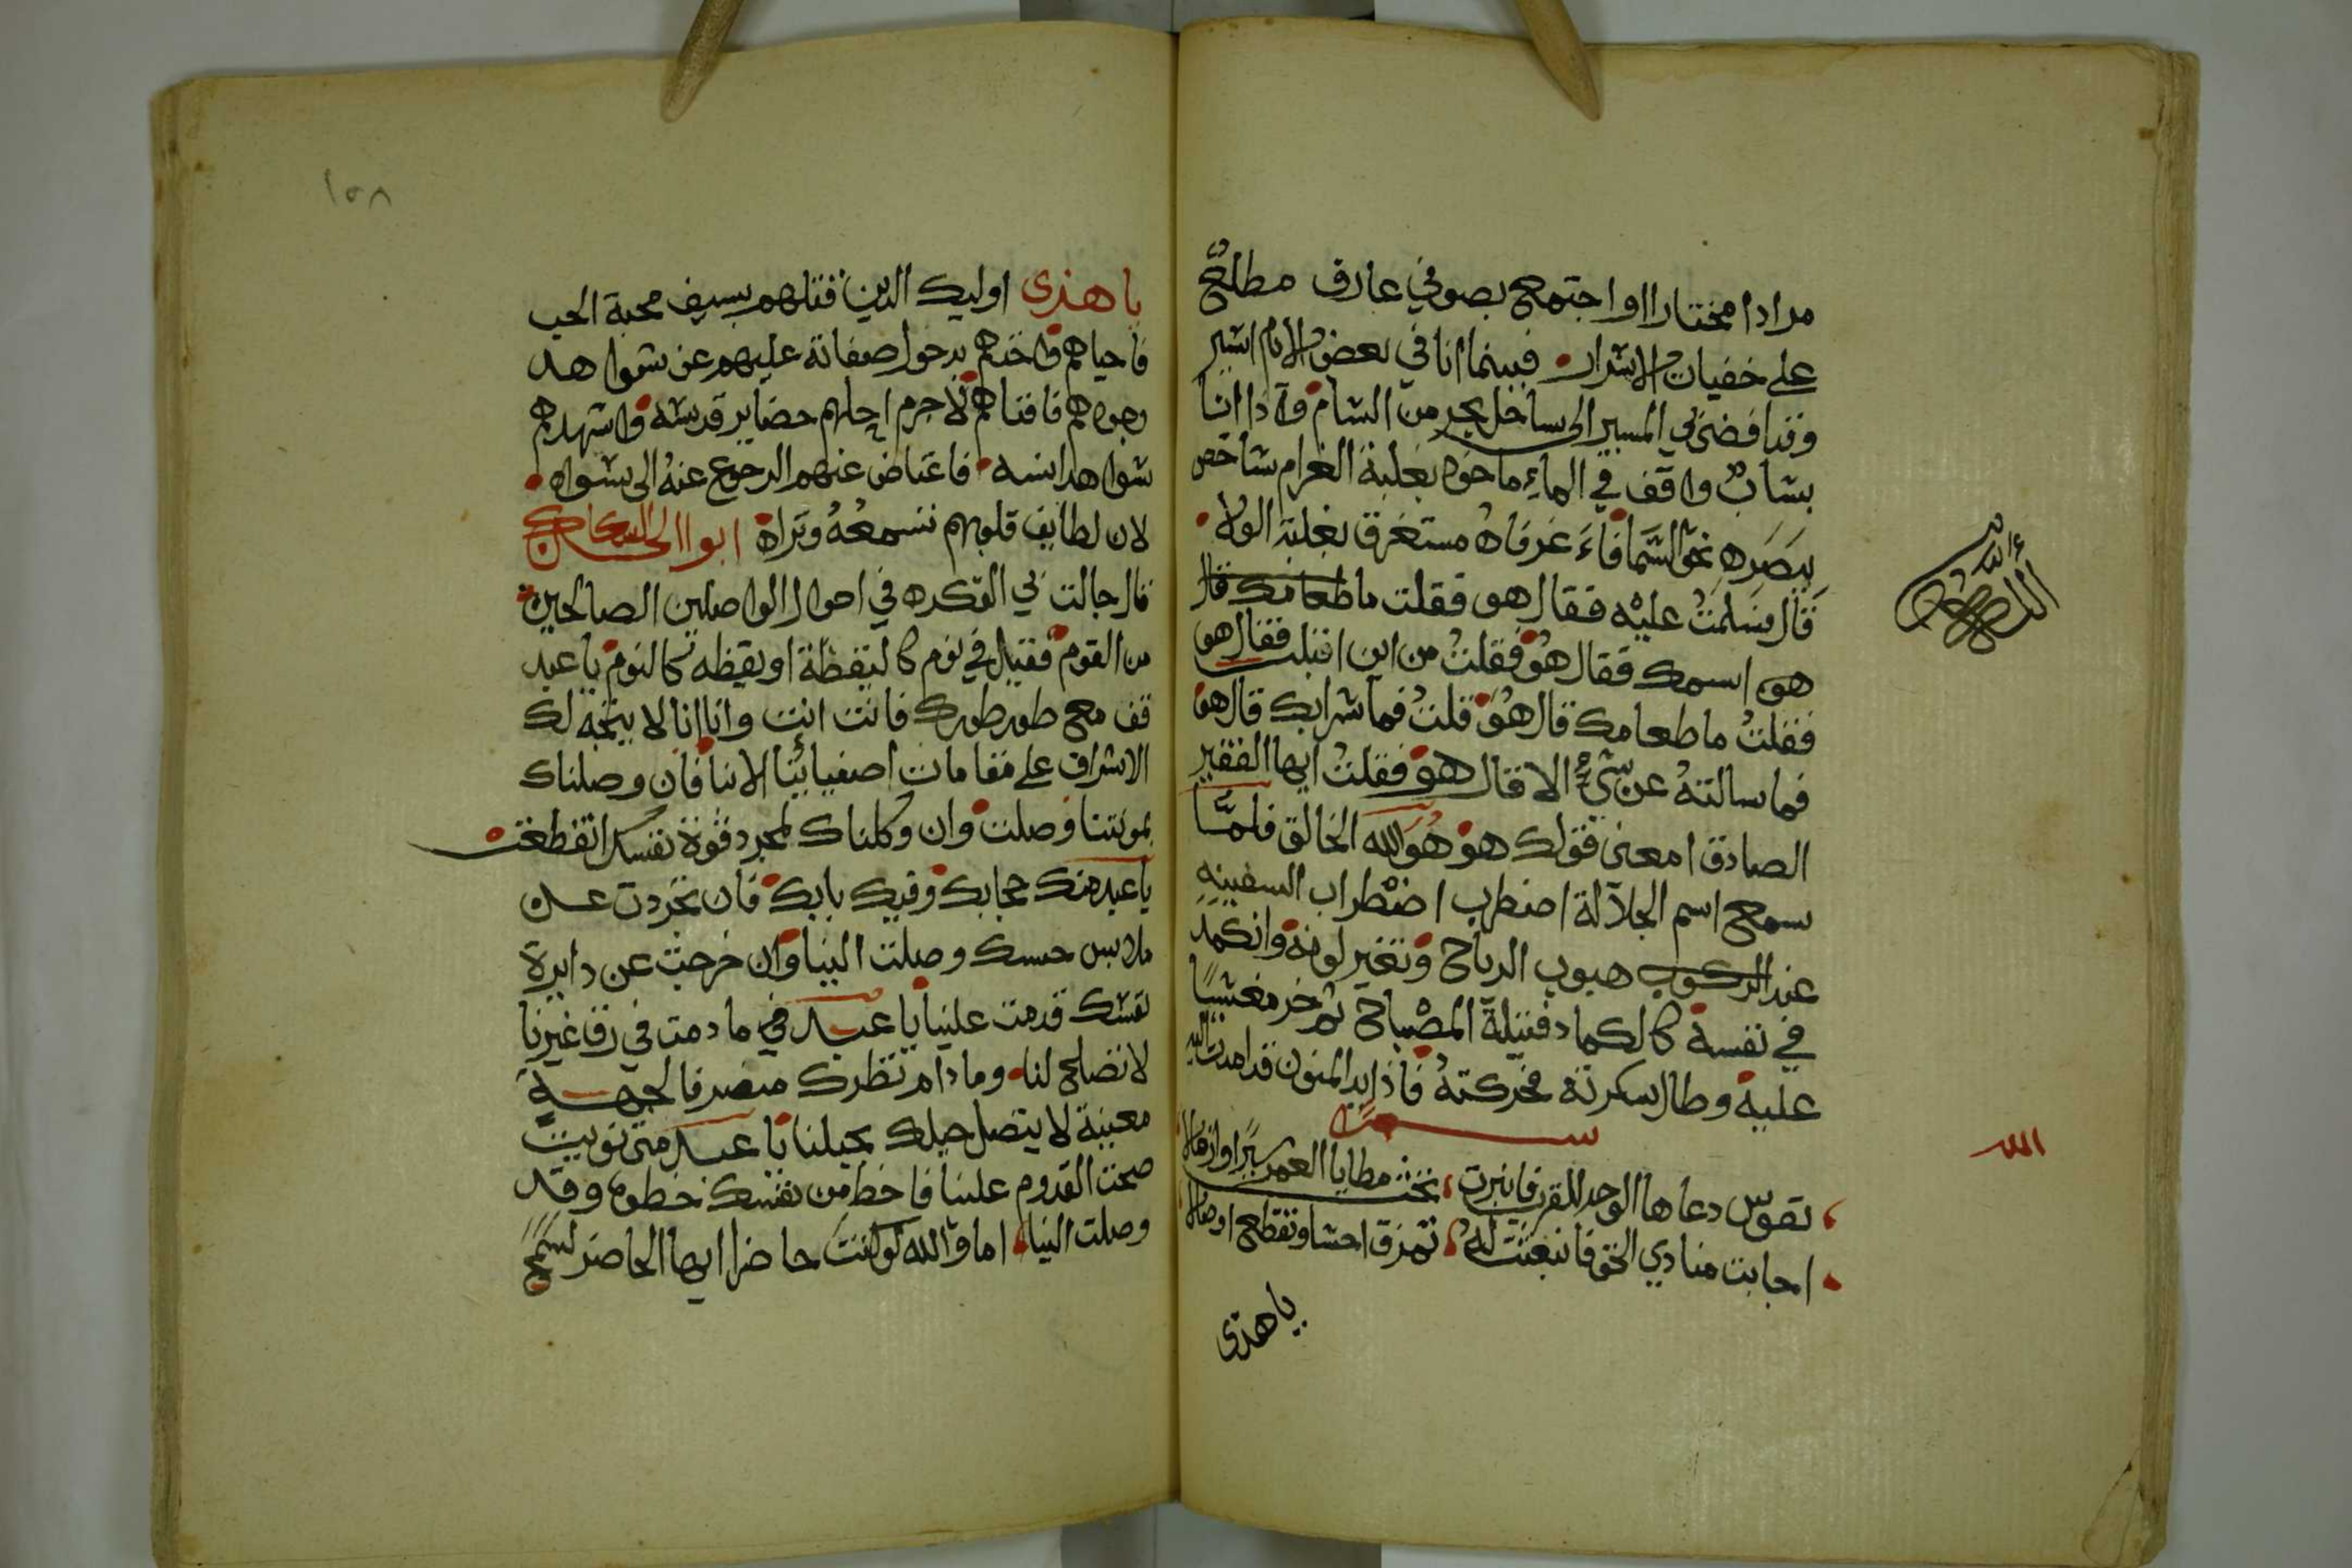 مرادا مختارا او اجتمع بصوفي عارف مطلع
على خفيات الاسرار فبينما انا في بعض الايام اسير
وقد افضى بي المسير الى ساحل بحر من الشام واذا انا
بشاب واقف في الماء ماخوذ بغلبة الغرام شاخص
ببصره نحو السما فاء عرفاه مستغرق بغلبة الولاه
قال فسلمت عليه فقال هو فقلت ما طعامك قال
هو اسمك فقال هو فقلت من اين اقبلت فقال هو
فقلت ما طعامك قال هو قلت فما شرابك قال هو
فما سالته عن شيء الا قال هو فقلت ايها الفقير
الصادق امعنى قولك هو هو الله الخالق فلما
سمع اسم الجلالة اضطرب اضطراب السفينه
عند الركوب هبوب الرياح وتغير لونه وانكمد
في نفسه كالكماد فتيلة المصباح ثم خر مغشيا
عليه وطال سكرته فحركته فاذا يد المنون قد امدت اليه
نفوس دعاها الوجد للقرب فانبرت تحث مطايا العمر سيرا وارقالا
اجابت منادي الحق فانبعثت له تمزق احشا وتقطع اوصالا
يا هذى
الله
يا هذى اوليك الذين قتلهم بسيف محبة الحب
فاحياهم واخذهم بدخول صفاته عليهم عن شواهد
وجودهم فافناهم لا جرم احلهم حضاير قدسه واشهدهم
شواهد انسه فاعتاض عنهم الرجوع عنه الى سواه
لان لطايف قلوبهم تسمعه وتراه ابو الحـ
قال جالت بي الفكره في احوال الواصلين الصالحين
من القوم فقيل في نوم كاليقظة او يقظه كالنوم يا عبد
قف مع طور طورك فانت انت وانا انا لا يتجه لك
الاشراف على مقامات اصفيائنا الا بنا فان وصلناك
بمونتنا وصلت وان وكلناك لمجرد قوة نفسك انقطعت
يا عبد منك حجابك وفيك بابك فان تجردت عن
ملابس حسك وصلت الينا وان خرجت عن دايرة
نفسك قدمت علينا يا عبدي ما دمت في رق غيرنا
لا تصلح لنا وما دام نظرك منصرفا لجهة
معينة لا يتصل حبلك بحبلنا يا عبد متى نويت
صحت القدوم علينا فاخط من نفسك خطوه وقد
وصلت الينا اما والله لو كنت حاضرا ايها الحاضر لسمع
١٥٨